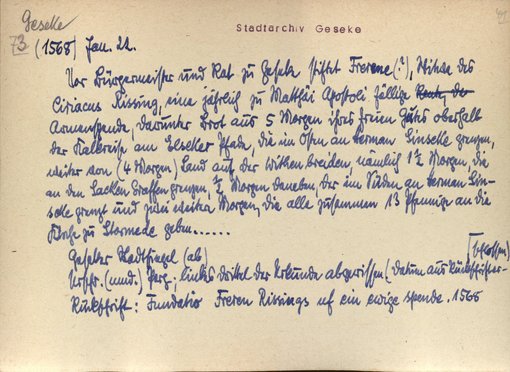 Geseke
Stadtarchiv Geseke
73 (1568) Jan. 22.
Vor Bürgermeister und Rat zu Geseke stiftet Frerene (?), Witwe des
Ciriacus Rissing, eine jährlich zu Matthäi Apostoli fällige Rente, der
Armenspende, darunter Brot aus 5 Morgen ihres freien Guts oberhalb
der am Elseker Pfade, die im Osten an Herman Linseke grenzen,
weiter von (4 Morgen) Land auf der breiden, nämlich 1 1/2 Morgen, die
an den grenzen, 1/2 Morgen daneben, der im Süden an Herman Lin-
seke grenzt und zwei weiter Morgen, die alle zusammen 13 Pfennige an die
Kirche zu Stormede geben......
Geseker Stadtsiegel (ab)
Urschr. (nnd.) Perg.; linkes Drittel der Urkunde abgerissen (Datum aus Rückschrift er-
schlossen)
Rückschrift: Fundatio Freren Rissings uf ein ewige spende. 1568